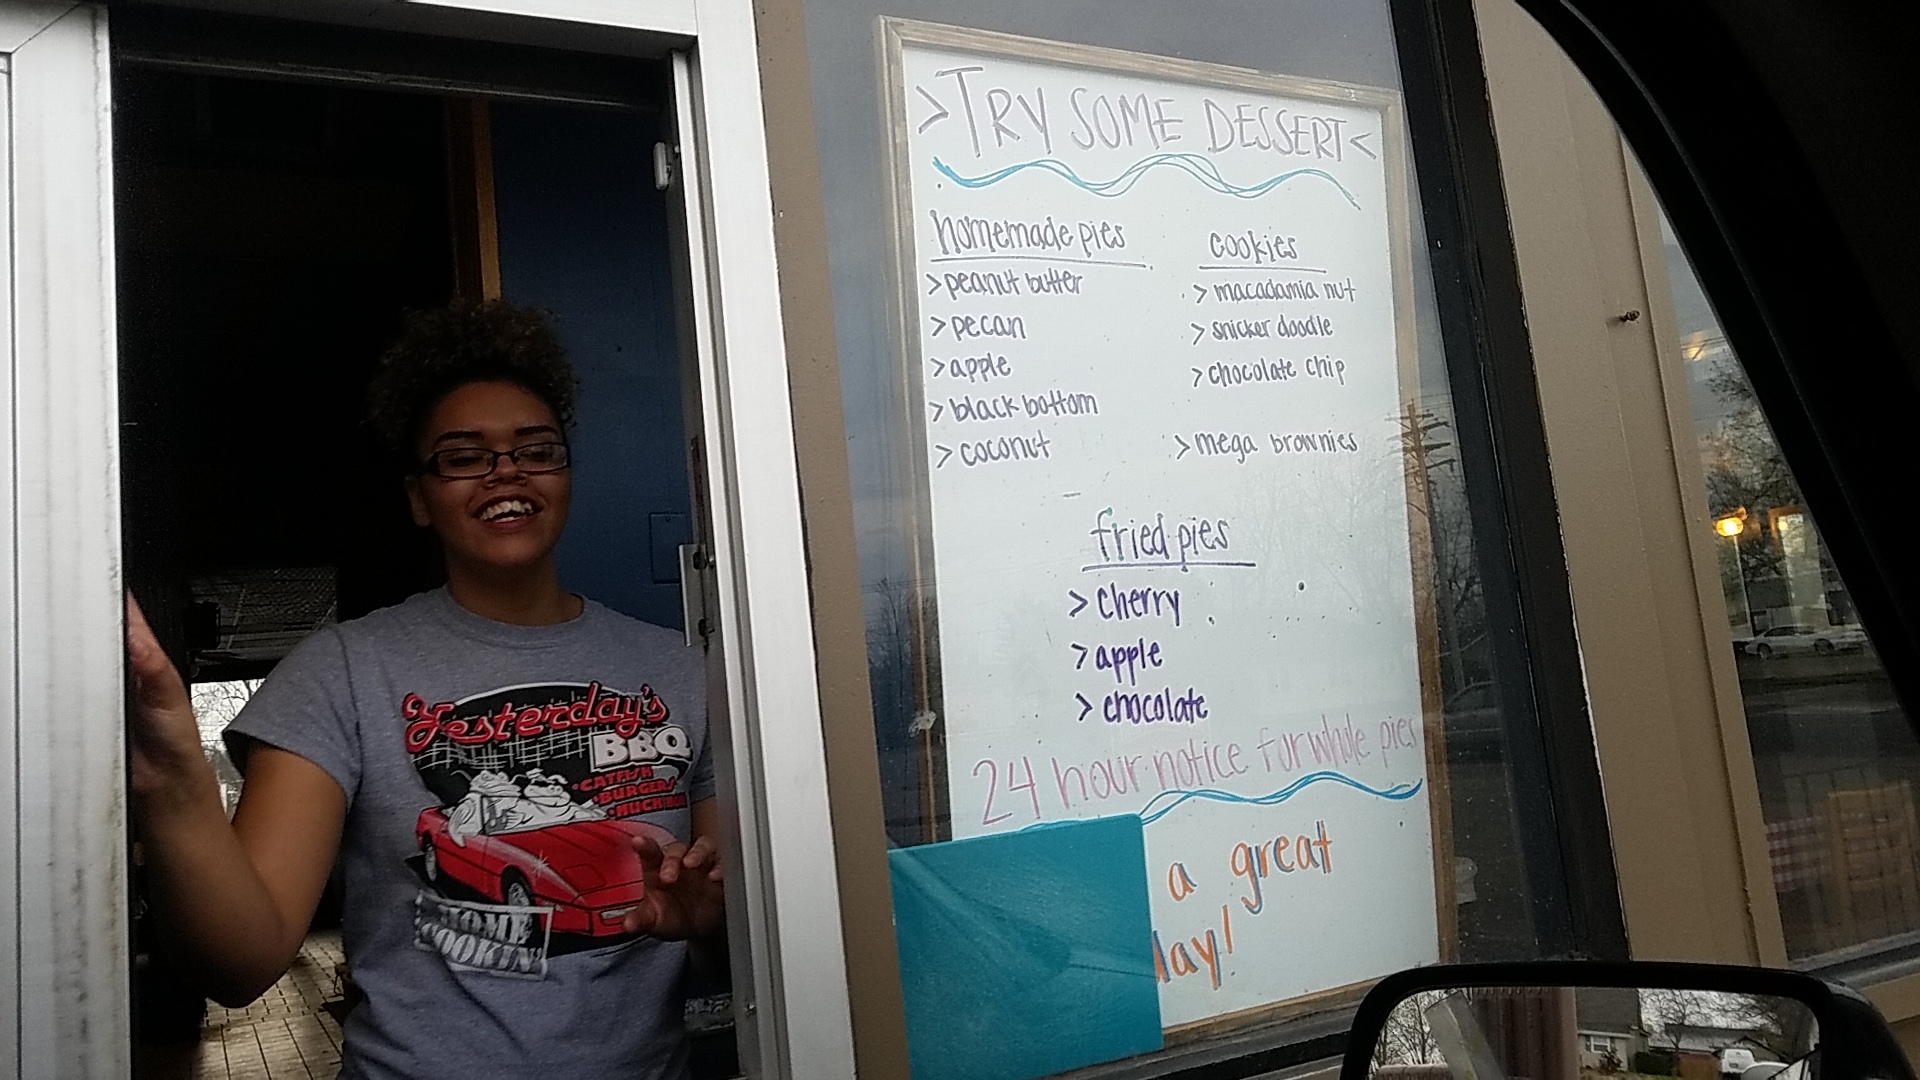 >TRY SOME DESSERT<
homemade pies
>peanut butter
>pecan
>apple
>black bottom
>coconut
cookies
>macadamia nut
>snicker doodle
>chocolate chip
>mega brownies
fried pies
>cherry
>apple
>chocolate
24 hour notice for whole pies
a great
day!
Yesterday's
BBQ
•CATFISH
•BURGERS
HOME
COOKIN'